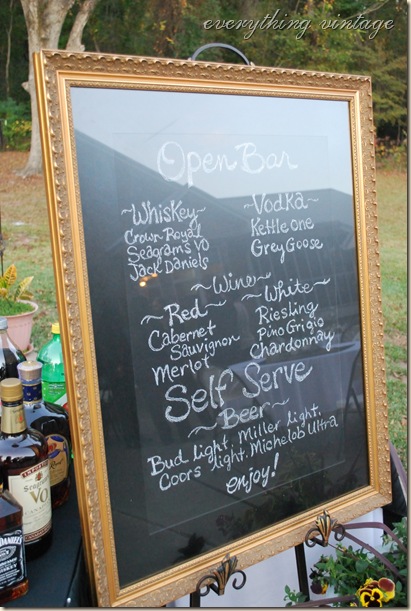 everything vintage
Open Bar
~Whiskey~
Crown Royal
Seagrams VO
Jack Daniels
~Vodka~
Kettle One
Grey Goose
~Wine~
~Red~
Cabernet
Sauvignon
Merlot
~White~
Riesling
Pino Grigio
Chardonnay
Self Serve
~Beer~
Bud light, Miller light,
Coors light, Michelob Ultra
enjoy!
VO